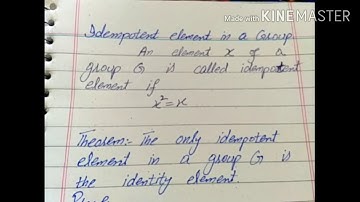 Made with KINEMASTER
Idempotent element in a Group.
An element x of a
group G is called idempotent
element if
x²=x
Theorem:- The only idempotent
element in a group G is
the identity element.